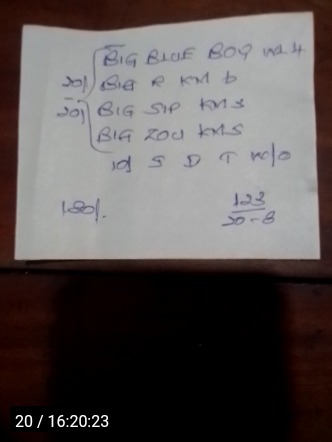 BIG BLUE BOY
20/ BIG R KM 6
20/ BIG SIP KMS
BIG ZOU KMS
10/ S D T w/o
180/.
123
20-8
20 / 16:20:23